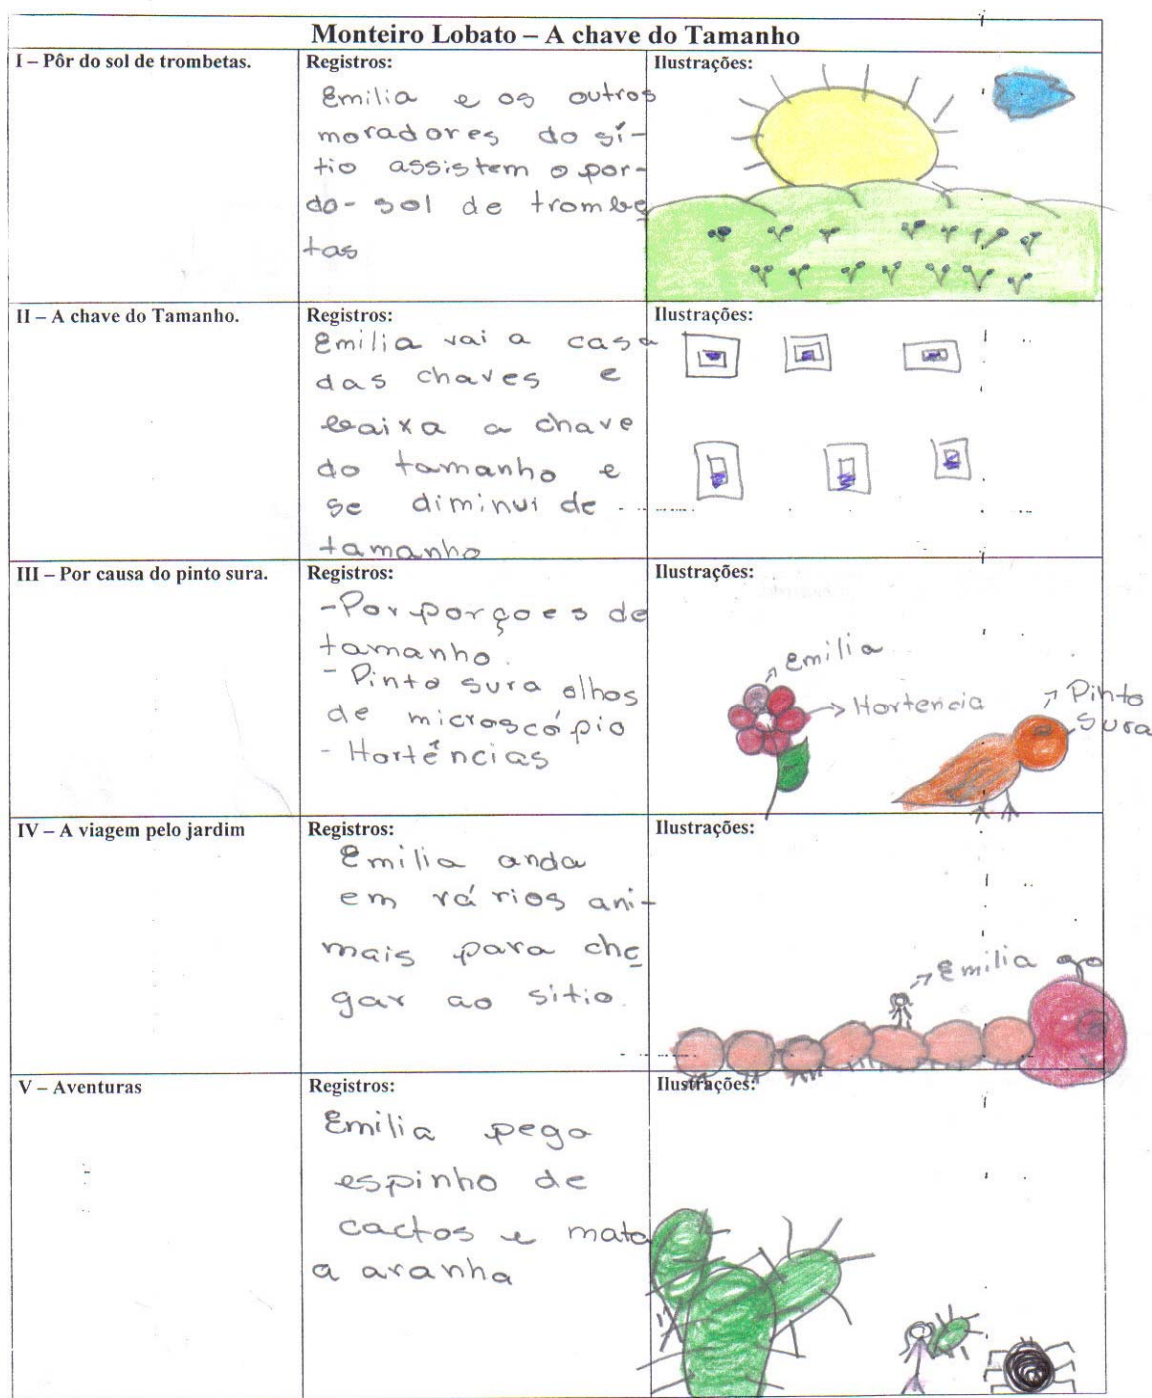 Monteiro Lobato – A chave do Tamanho
I – Pôr do sol de trombetas.
Registros:
Emilia e os outros
moradores do sí-
tio assistem o por-
do-sol de trombe
tas
Ilustrações:
II – A chave do Tamanho.
Registros:
Emilia vai a casa
das chaves e
baixa a chave
do tamanho e
se diminui de
tamanho
Ilustrações:
III – Por causa do pinto sura.
Registros:
- Porporçoes de
tamanho.
- Pinto sura olhos
de microscópio
- Hortências
Ilustrações:
Emilia
Hortencia
Pinto
Sura
IV – A viagem pelo jardim
Registros:
Emilia anda
em vários ani-
mais para che
gar ao sitio.
Ilustrações:
Emilia
V – Aventuras
Registros:
Emilia pega
espinho de
cactos e mata
a aranha
Ilustrações: